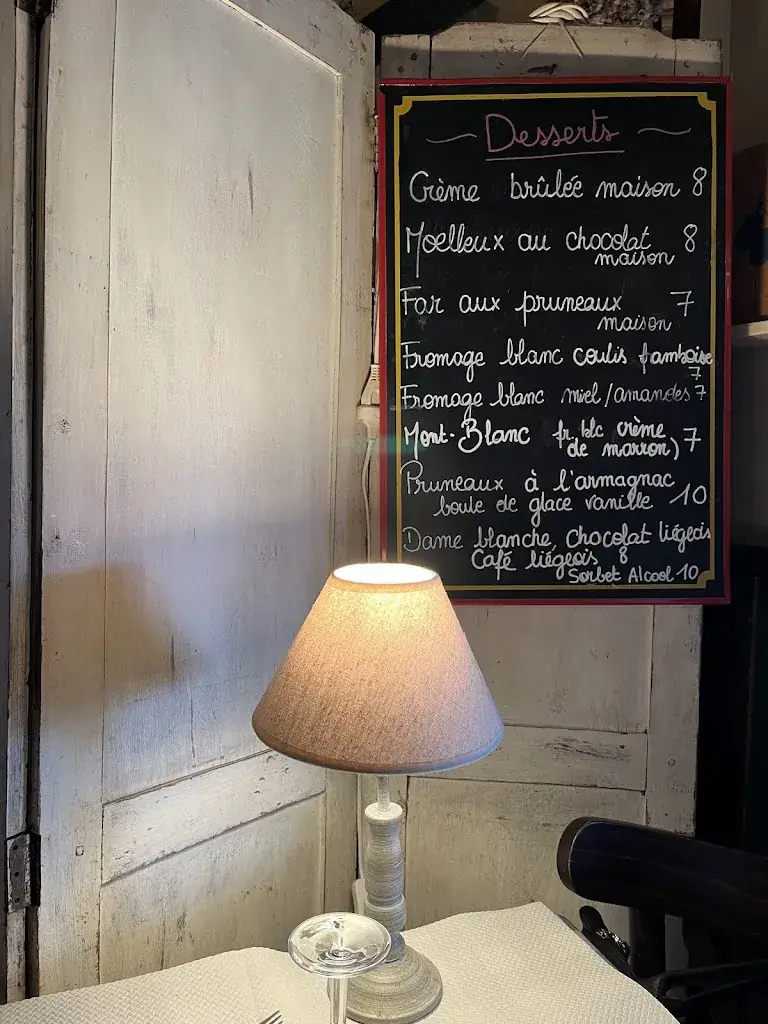 Desserts
Crème brûlée maison 8
Moelleux au chocolat 8
maison
Far aux pruneaux 7
maison
Fromage blanc coulis framboise
7
Fromage blanc miel/amandes 7
Mont-Blanc fr, blc crème
de marron) 7
Pruneaux à l'armagnac
boule de glace vanille 10
Dame blanche, chocolat liégeois
Café liégeois 8
Sorbet Alcool 10